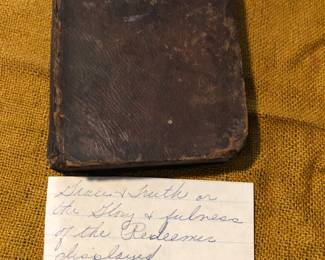 Grace & Truth or
the Glory & fulness
of the Redeemer
displayed